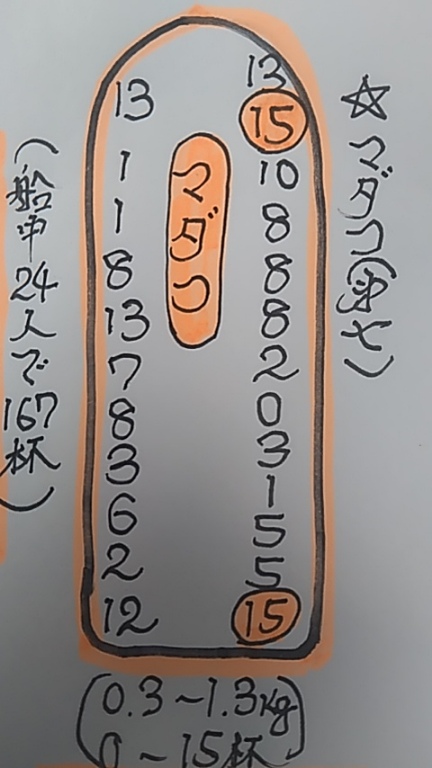 ☆マダコ
マダコ
13
15
10
8
8
8
2
0
3
1
5
5
15
13
1
1
8
13
7
8
3
6
2
12
(船中24人で167杯)
(0.3~1.3kg
0~15杯)